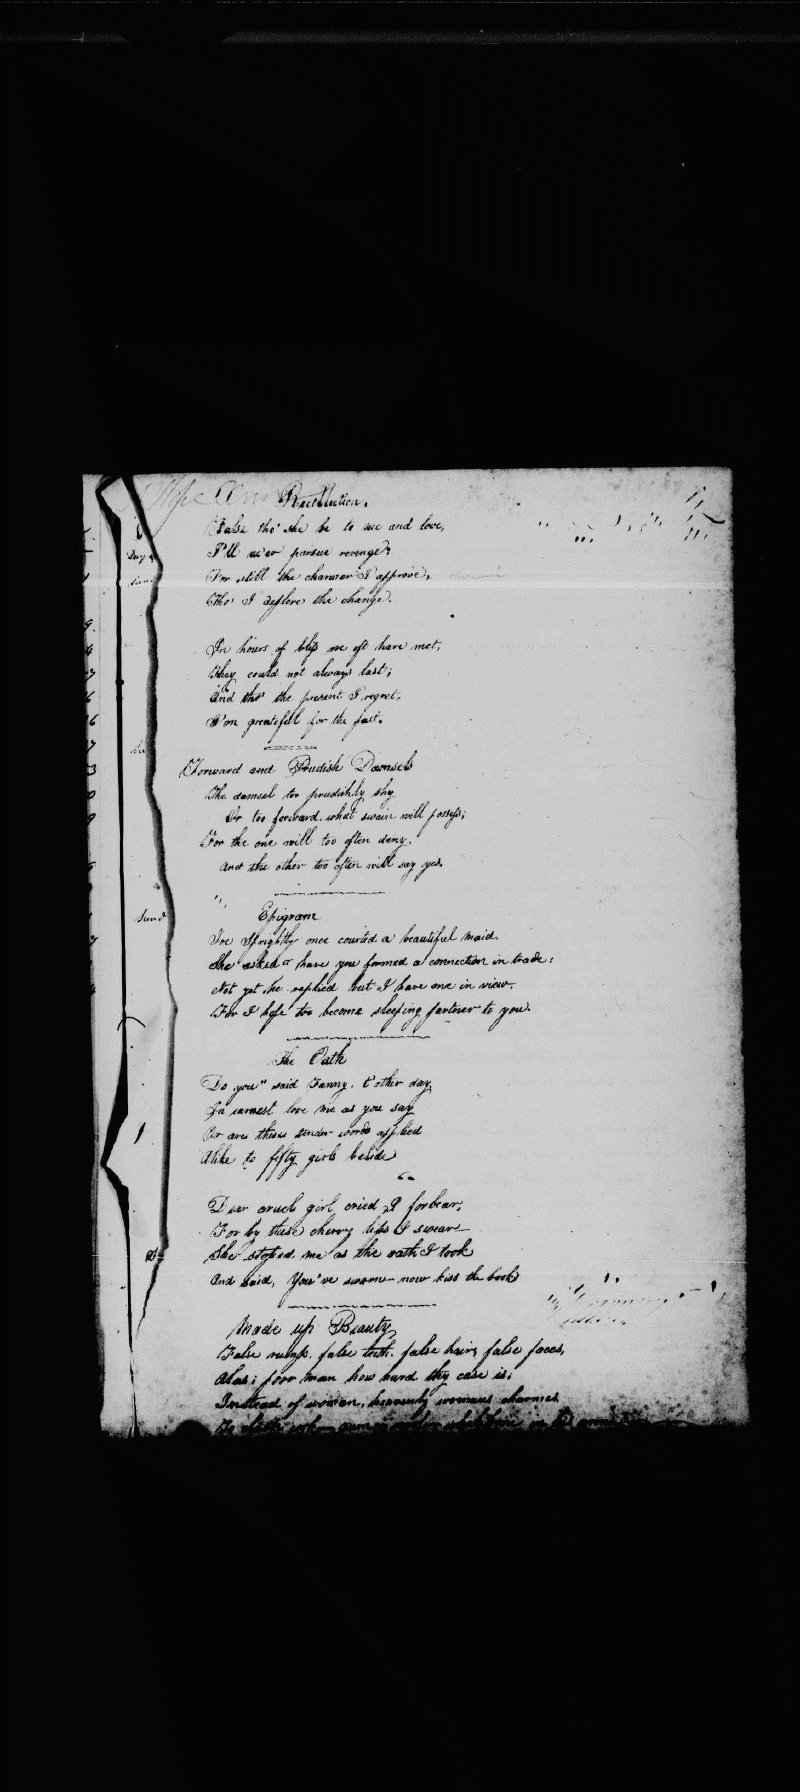 Recollection.
False tho' she be to me and love,
I'll ne'er pursue revenge;
For still the charmer I approve,
Tho' I deplore the change.
In hours of bliss we oft have met,
They could not always last;
And tho' the present I regret,
I'm greatefull for the past.
Forward and Prudish Damsels
The damsel too prudishly shy
Or too forward, what swain will possess;
For the one will too often deny,
And the other too often will say yes.
Epigram
Joe Sprightly once courted a beautiful maid.
She asked have you formed a connection in trade;
Not yet he replied but I have one in view,
For I hope too become sleeping partner to you.
The Oath
Do you" said Fanny, t'other day
In earnest love me as you say
Or are these tender words applied
Alike to fifty girls beside
Dear cruel girl cried I forbear,
For by these cherry lips I swear
She stoped me as the oath I took
And said, You've sworn now kiss the book
Made up Beauty
False rumps, false teeth, false hair, false faces,
Alas; poor man how hard thy case is;
Instead of woman, heavenly womans charmes
To